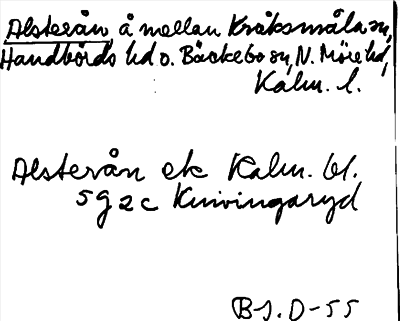 Alsterån, å mellan Kråksmåla sn,
Handbörds hd o. Bäckebo sn, N. Möre hd,
Kalm. l.
Alsterån ek Kalm. bl.
5g2c Knivingaryd
B-J. D-55